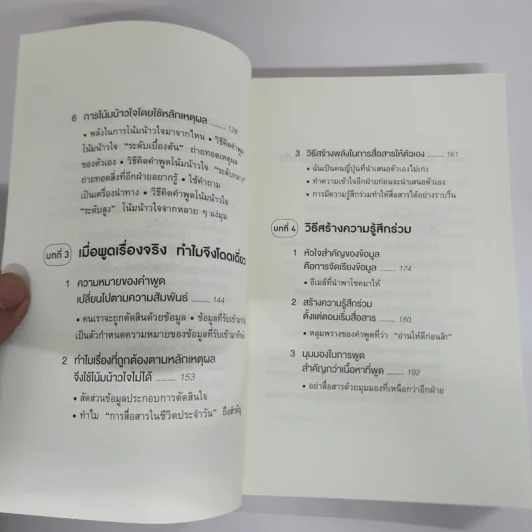 6 การโน้มน้าวใจโดยใช้หลักเหตุผล ........ 128
• พลังในการโน้มน้าวใจมาจากไหน • วิธีคิดคำพูด
โน้มน้าวใจ “ระดับเบื้องต้น” ถ่ายทอดเหตุผล
ของตัวเอง • วิธีคิดคำพูดโน้มน้าวใจ “ระดับกลาง”
ถ่ายทอดสิ่งที่อีกฝ่ายอยากรู้ • ใช้คำถาม
เป็นเครื่องนำทาง • วิธีคิดคำพูดโน้มน้าวใจ
“ระดับสูง” โน้มน้าวใจจากหลาย ๆ แง่มุม
บทที่ 3 เมื่อพูดเรื่องจริง ทำไมจึงโดดเดี่ยว
1 ความหมายของคำพูด
เปลี่ยนไปตามความสัมพันธ์ ........ 144
• คนเราจะถูกตัดสินด้วยข้อมูล • ข้อมูลที่รับเข้ามา
เป็นตัวกำหนดความหมายของข้อมูลที่รับเข้ามา
2 ทำไมเรื่องที่ถูกต้องตามหลักเหตุผล
จึงใช้โน้มน้าวใจไม่ได้ ........ 153
• สัดส่วนข้อมูลประกอบการตัดสินใจ
• ทำไม “การสื่อสารในชีวิตประจำวัน” ถึงสำคัญ
3 วิธีสร้างพลังในการสื่อสารให้ตัวเอง ........ 161
• ฉันเป็นคนญี่ปุ่นที่นำเสนอตัวเองไม่เก่ง
• ทำความเข้าใจอีกฝ่ายก่อนจะนำเสนอตัวเอง
• การมีความรู้สึกร่วมทำให้สื่อสารได้อย่างราบรื่น
บทที่ 4 วิธีสร้างความรู้สึกร่วม
1 หัวใจสำคัญของข้อมูล
คือการจัดเรียงข้อมูล ........ 174
• อีเมล์ที่นำพาโชคมาให้
2 สร้างความรู้สึกร่วม
ตั้งแต่ตอนเริ่มสื่อสาร ........ 180
• หลุมพรางของคำพูดที่ว่า “อ่านให้ดีก่อนสิ!”
3 มุมมองในการพูด
สำคัญกว่าเนื้อหาที่พูด ........ 192
• อย่าสื่อสารด้วยมุมมองที่เหนือกว่าอีกฝ่าย